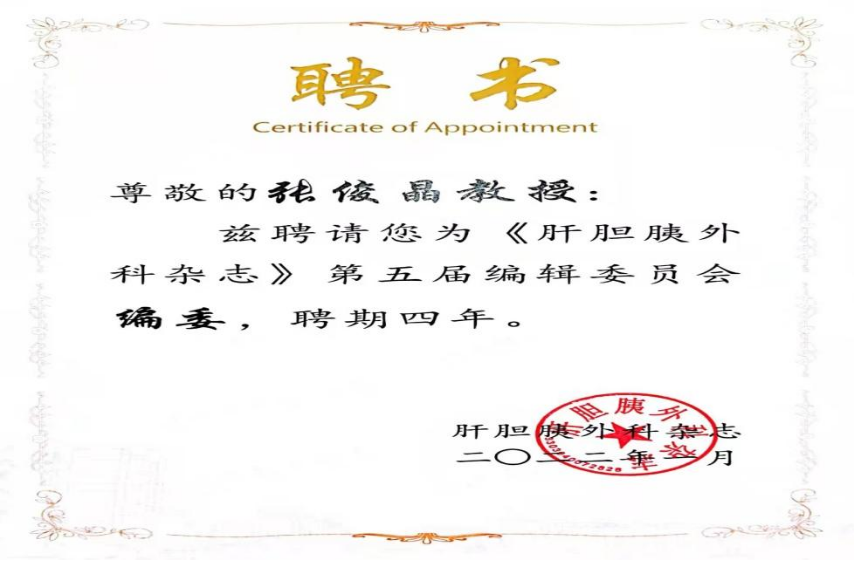 聘 书
Certificate of Appointment
尊敬的张俊晶教授：
兹聘请您为《肝胆胰外
科杂志》第五届编辑委员会
编委，聘期四年。
肝胆胰外科杂志
二〇二二年一月
肝胆胰外科杂志